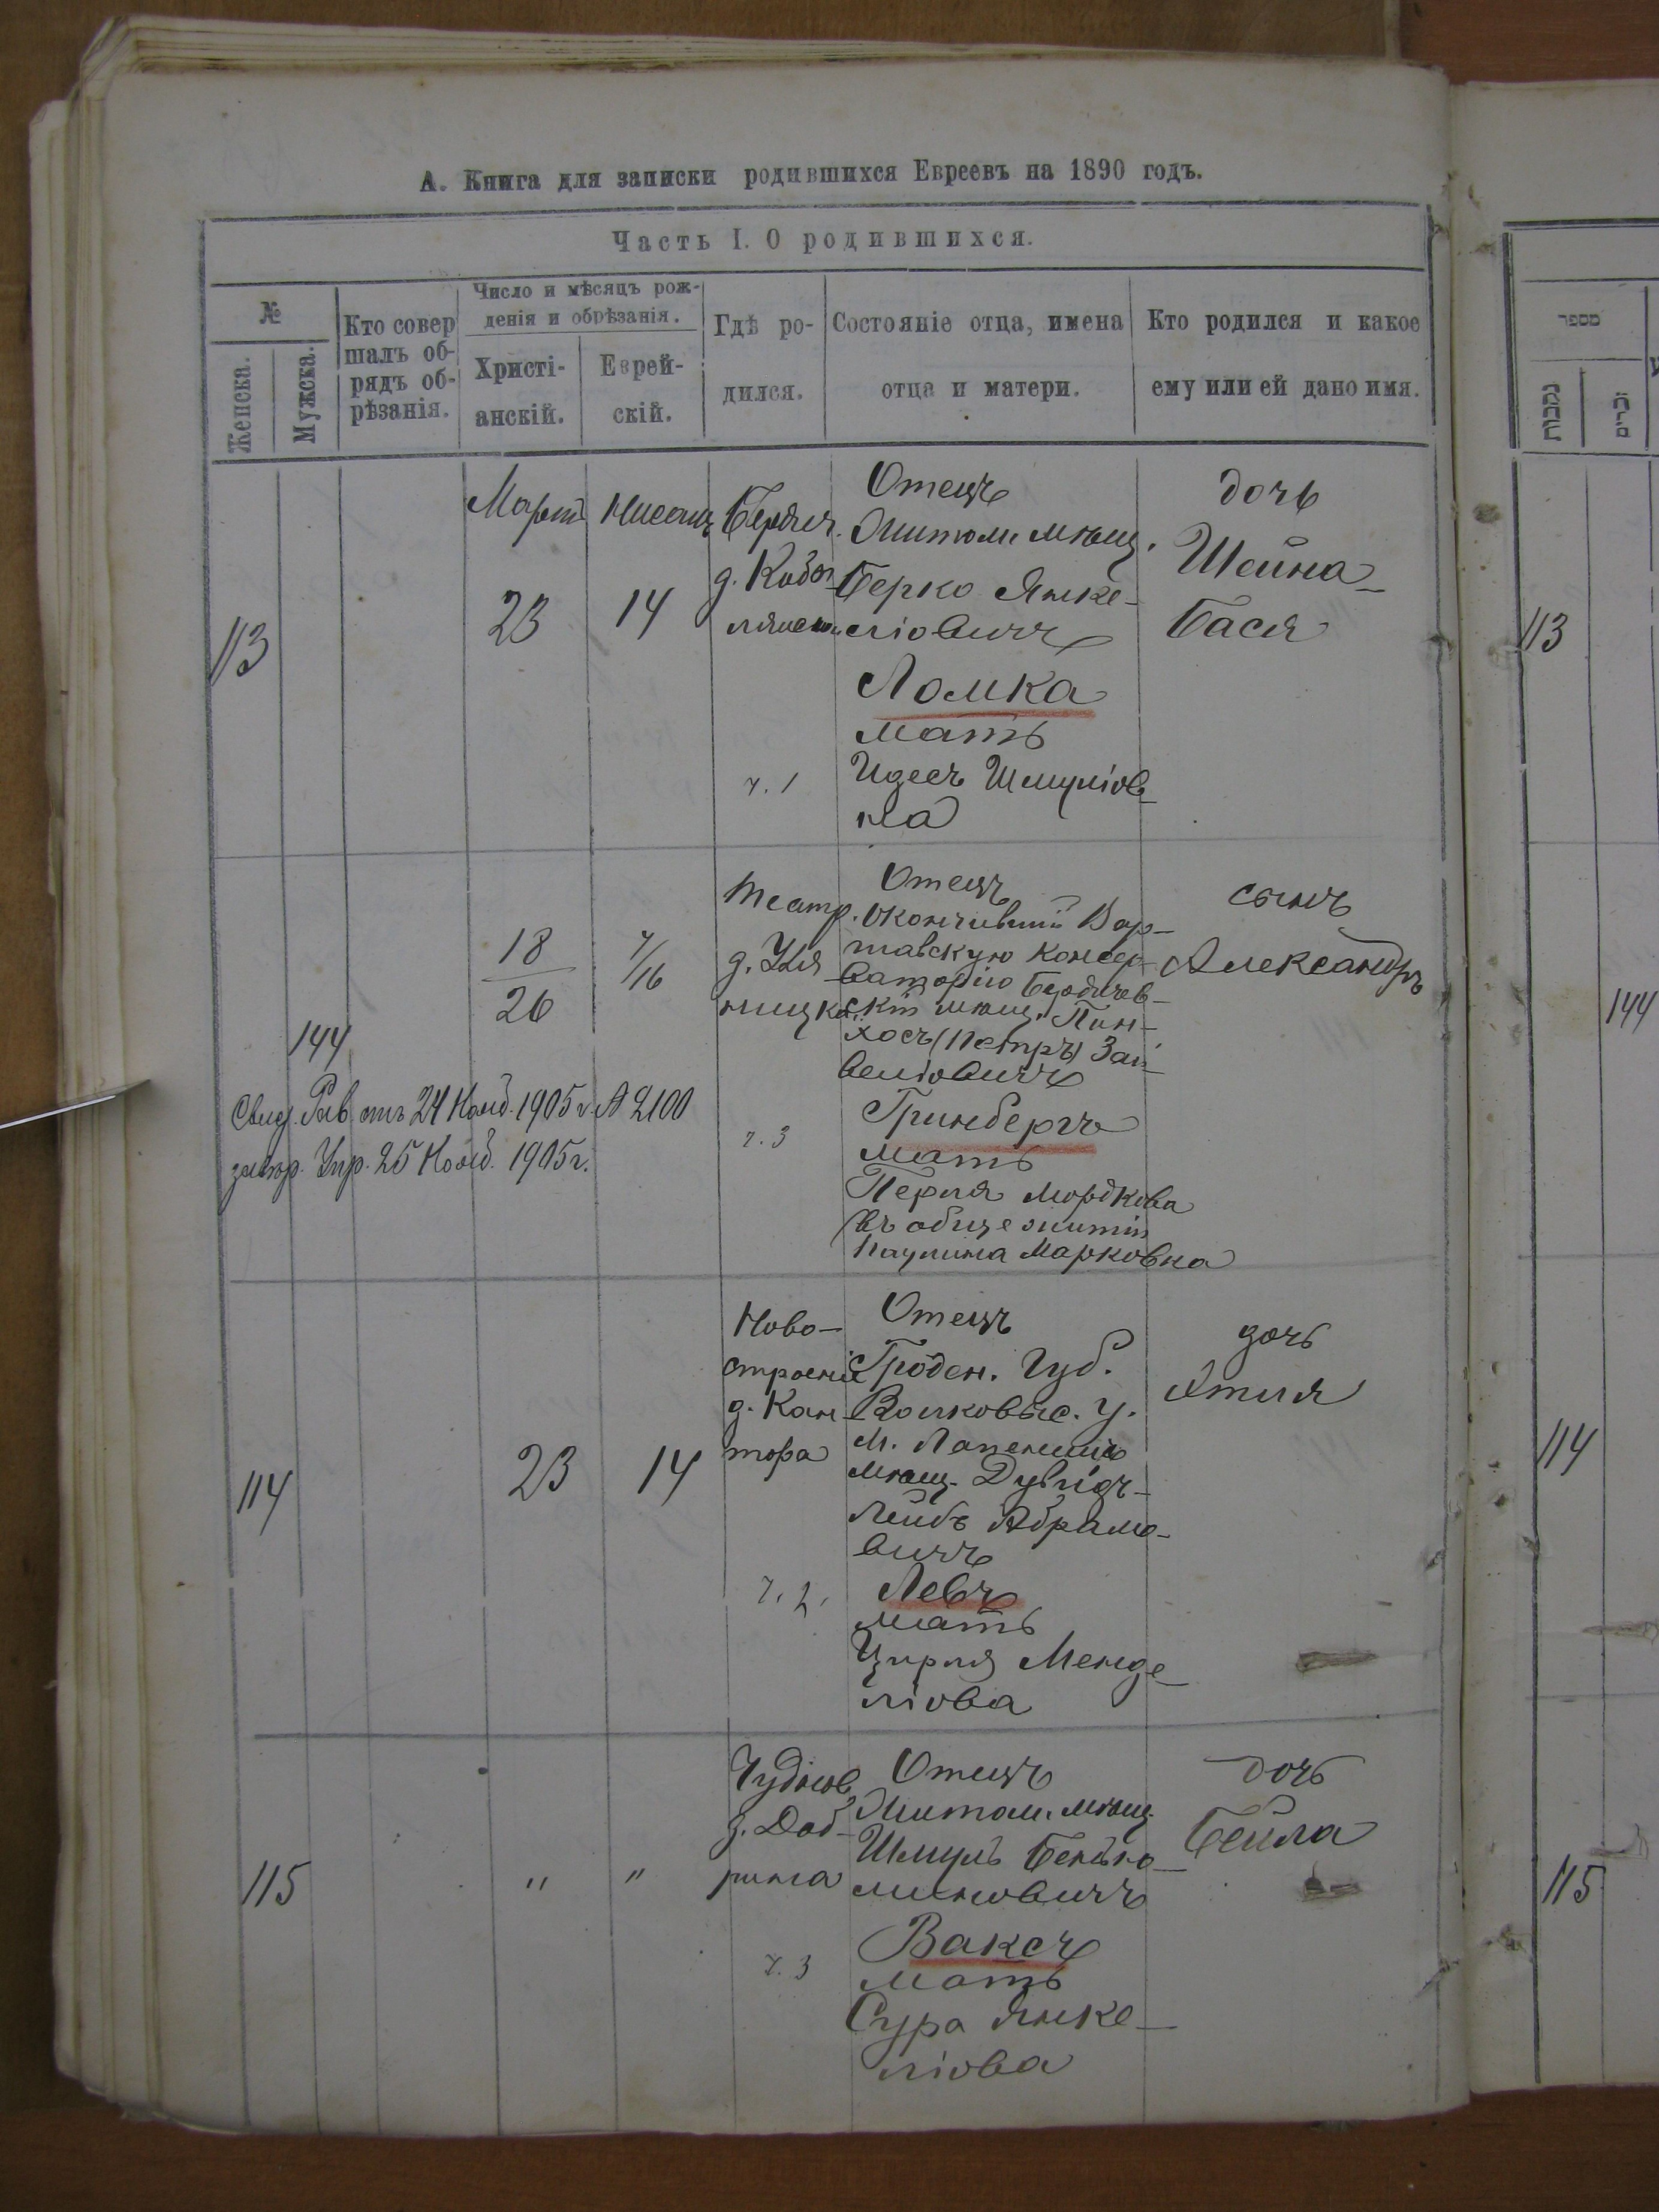 А. Книга для записки родившихся Евреевъ на 1890 годъ.
Часть I. О родившихся.
№
Женска.
Мужска.
Кто совер
шалъ об-
рядъ об-
рѣзанія.
Число и мѣсяцъ рож-
денія и обрѣзанія.
Христі-
анскій.
Еврей-
скій.
Гдѣ ро-
дился.
Состояніе отца, имена
отца и матери.
Кто родился и какое
ему или ей дано имя.
113
Мартъ
23
Нисанъ
14
Бердич.
ч. 1
Отецъ
Житом. мѣщ.
Берко Янке-
ліовичъ
Ломка
мать
Идесъ Шмуліов-
на
дочь
Шейна-
Бася
144
18
26
7/16
Театр.
ч. 3
Отецъ
окончившій Вар-
шавскую консер-
ваторію Бердичев-
скій мѣщ. Пин-
хосъ (Петръ) Зай-
веліовичъ
Гринбергъ
мать
Перля Мордкова
(въ общежитіи
Паулина Марковна
сынъ
Александръ
Свид. Рав. отъ 24 Нояб. 1905 г. № 2100
Упр. 25 Нояб. 1905 г.
114
23
14
Ново-
строеніе
д. Кан-
тора
ч. 2.
Отецъ
Гроден. Губ.
Волковыс. у.
м.
мѣщ. Дувидъ-
Лейбъ Абрамо-
вичъ
Левъ
мать
Цирля Менде-
ліова
дочь
Этля
115
"
"
Чуднов.
д. Доб-
рина
ч. 3
Отецъ
Житом. мѣщ.
Шмуль Беньо-
миновичъ
Ваксъ
мать
Сура Янке-
ліова
дочь
Бейла
מספר
נקבות
זכרים
113
144
114
115